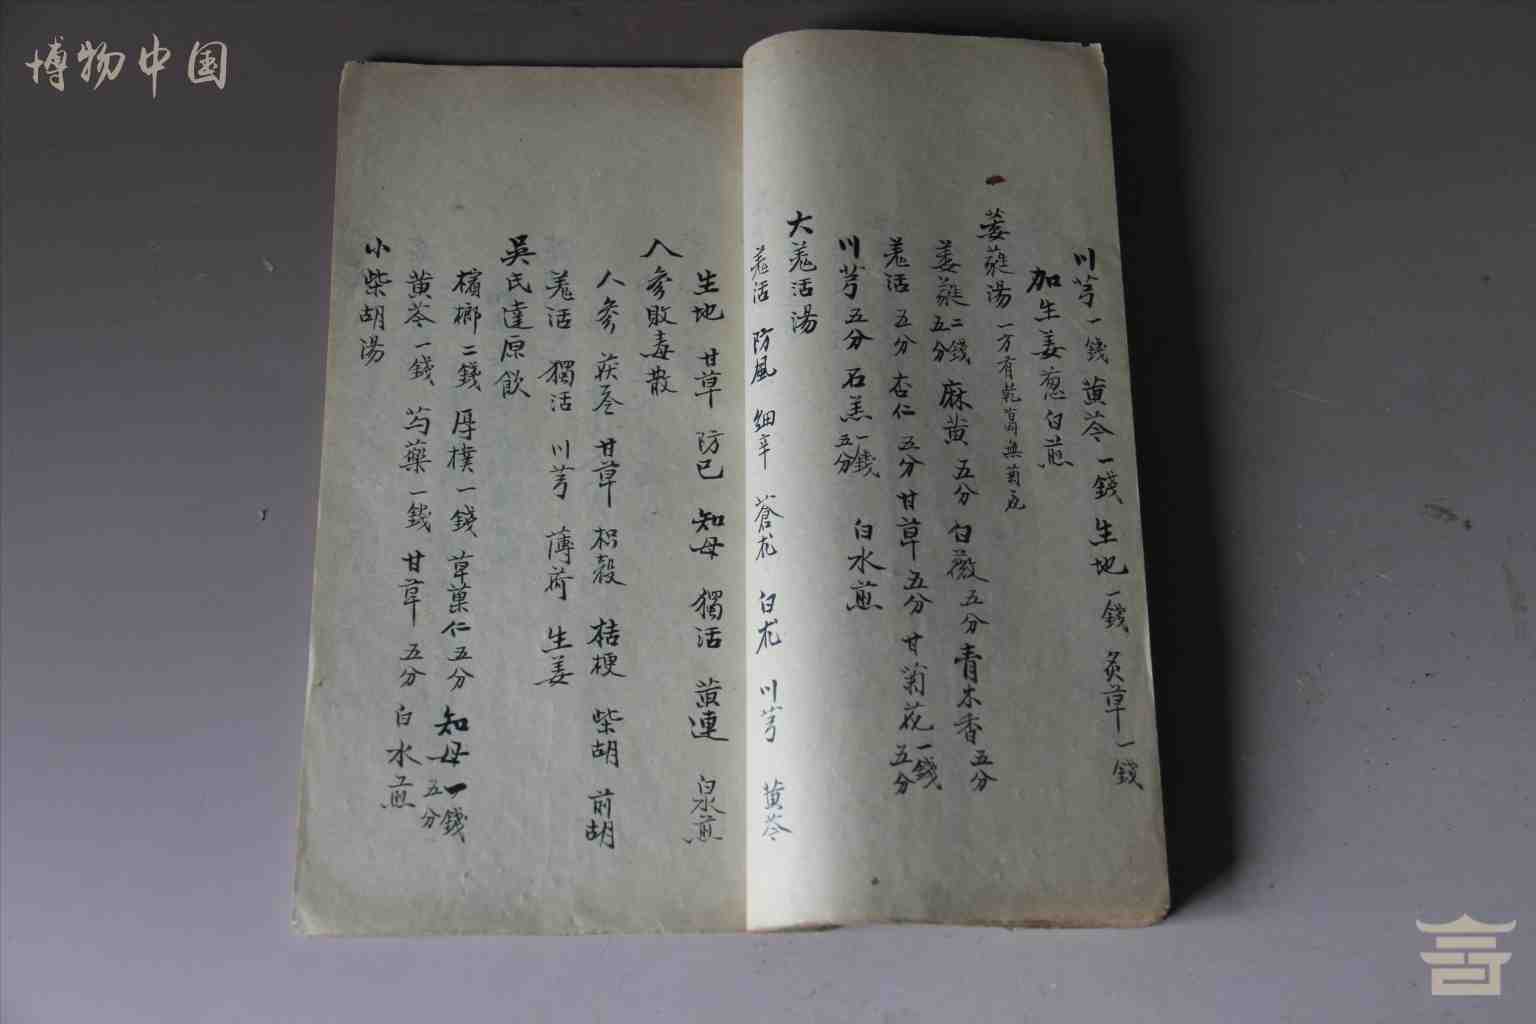 博物中国
川芎一錢 黄芩一錢 生地一錢 炙草一錢
加生姜葱白煎
一 葳蕤湯 一方有乾葛無菊花
葳蕤二錢五分 麻黄五分 白薇五分 青木香五分
羗活五分 杏仁五分 甘草五分 甘菊花一錢五分
川芎五分 石羔一錢五分 白水煎
大羗活湯
羗活 防風 細辛 蒼朮 白朮 川芎 黄芩
生地 甘草 防已 知母 獨活 黄連 白水煎
人參敗毒散
人參 茯苓 甘草 枳殼 桔梗 柴胡 前胡
羗活 獨活 川芎 薄荷 生姜
吳氏達原飲
檳榔二錢 厚樸一錢 草菓仁五分 知母一錢五分
黄芩一錢 芍藥一錢 甘草五分 白水煎
小柴胡湯